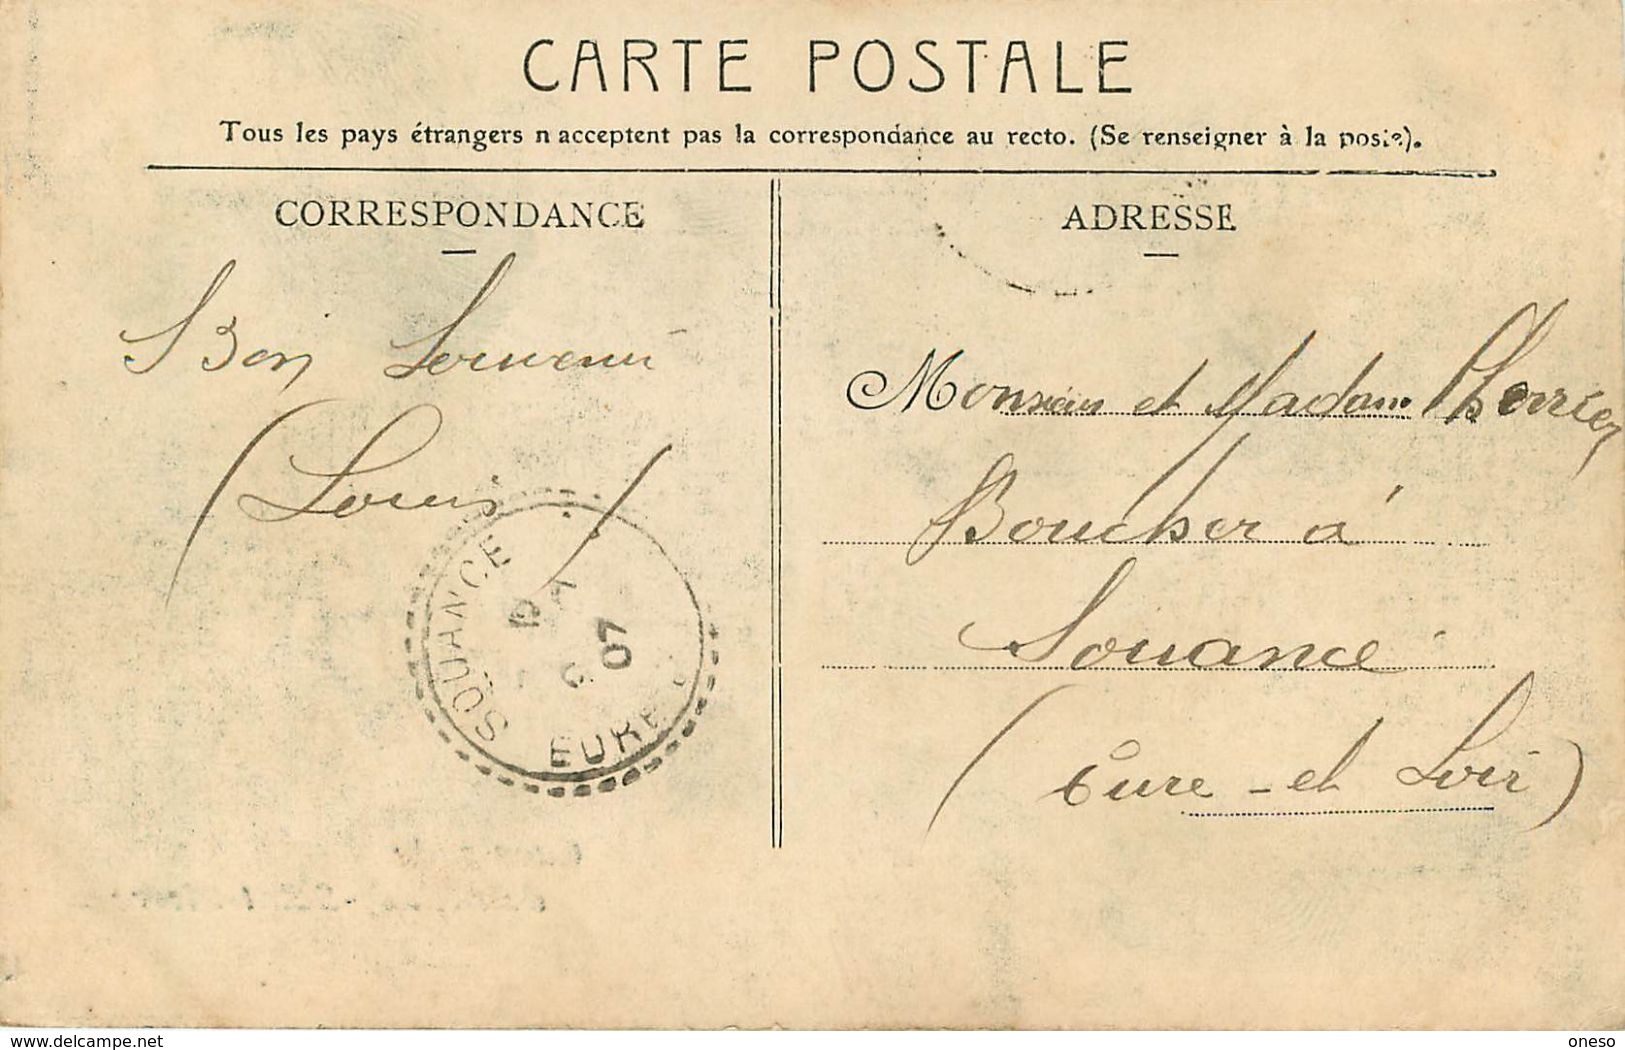 CARTE POSTALE
Tous les pays étrangers n acceptent pas la correspondance au recto. (Se renseigner à la poste).
CORRESPONDANCE
Bon Souvenir
(Louis)
SOUANCE
EURE
07
ADRESSE
Monsieur et Madame
Boucher à
Souancé
(Eure-et Loir)
www.delcampe.net
oneso